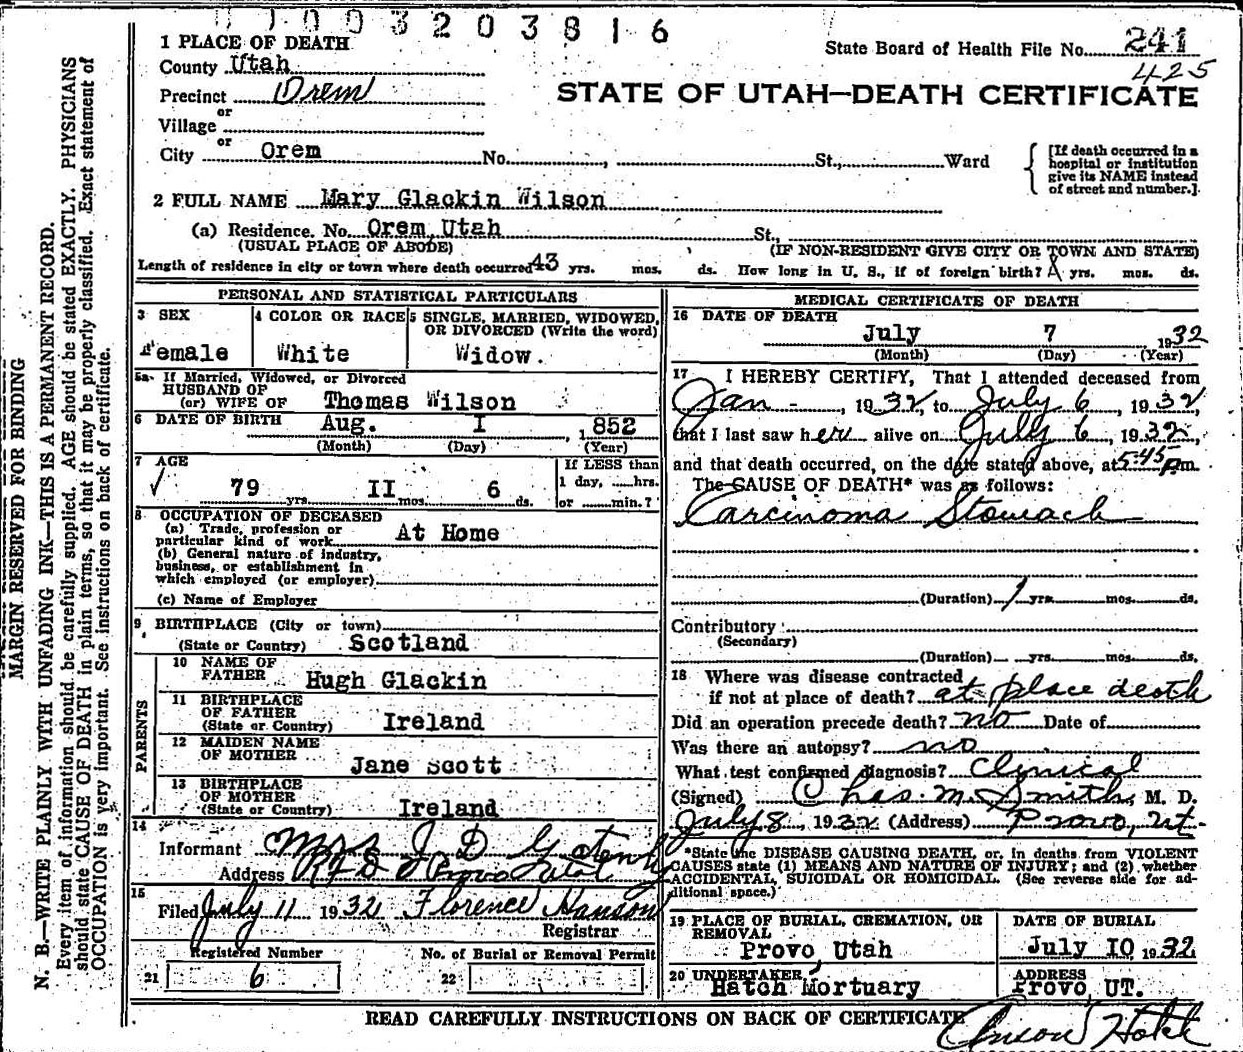 003203816
1 PLACE OF DEATH
State Board of Health File No. 241
County Utah
425
Precinct Orem
STATE OF UTAH—DEATH CERTIFICATE
or
Village
or
City Orem No. , St., Ward
[If death occurred in a hospital or institution give its NAME instead of street and number.]
2 FULL NAME Mary Glackin Wilson
(a) Residence. No. Orem, Utah St.,
(USUAL PLACE OF ABODE) (IF NON-RESIDENT GIVE CITY OR TOWN AND STATE)
Length of residence in city or town where death occurred 43 yrs. mos. ds. How long in U. S., if of foreign birth? yrs. mos. ds.
PERSONAL AND STATISTICAL PARTICULARS
3 SEX
Female
4 COLOR OR RACE
White
5 SINGLE, MARRIED, WIDOWED, OR DIVORCED (Write the word)
Widow.
5a If Married, Widowed, or Divorced
HUSBAND OF
(or) WIFE OF Thomas Wilson
6 DATE OF BIRTH Aug. I , 1852
(Month) (Day) (Year)
7 AGE
79 yrs. II mos. 6 ds.
If LESS than
1 day, hrs.
or min.?
8 OCCUPATION OF DECEASED
(a) Trade, profession or
particular kind of work At Home
(b) General nature of industry,
business, or establishment in
which employed (or employer)
(c) Name of Employer
9 BIRTHPLACE (City or town)
(State or Country) Scotland
PARENTS
10 NAME OF
FATHER Hugh Glackin
11 BIRTHPLACE
OF FATHER
(State or Country) Ireland
12 MAIDEN NAME
OF MOTHER Jane Scott
13 BIRTHPLACE
OF MOTHER
(State or Country) Ireland
14
Informant Mrs J D
Address RFD Provo Utah
15
Filed July 11 1932 Florence Hanson
Registrar
Registered Number
21 6
No. of Burial or Removal Permit
22
MEDICAL CERTIFICATE OF DEATH
16 DATE OF DEATH
July 7 1932
(Month) (Day) (Year)
17 I HEREBY CERTIFY, That I attended deceased from
Jan - , 1932, to July 6 , 1932,
that I last saw her alive on July 6 , 1932,
and that death occurred, on the date stated above, at 5:45 Pm.
The CAUSE OF DEATH* was as follows:
Carcinoma Stomach
(Duration) 1 yrs. mos. ds.
Contributory
(Secondary)
(Duration) yrs. mos. ds.
18 Where was disease contracted
if not at place of death? at place death
Did an operation precede death? no Date of
Was there an autopsy? no
What test confirmed diagnosis? Clynical
(Signed) Chas. M. Smith, M. D.
July 8 , 1932 (Address) Provo, Ut.
*State the DISEASE CAUSING DEATH, or, in deaths from VIOLENT
CAUSES state (1) MEANS AND NATURE OF INJURY; and (2) whether
ACCIDENTAL, SUICIDAL OR HOMICIDAL. (See reverse side for ad-
ditional space.)
19 PLACE OF BURIAL, CREMATION, OR
REMOVAL
Provo, Utah
DATE OF BURIAL
July 10 1932
20 UNDERTAKER
Hatch Mortuary
ADDRESS
Provo, UT.
READ CAREFULLY INSTRUCTIONS ON BACK OF CERTIFICATE
MARGIN RESERVED FOR BINDING
N. B.—WRITE PLAINLY WITH UNFADING INK—THIS IS A PERMANENT RECORD.
Every item of information should be carefully supplied. AGE should be stated EXACTLY. PHYSICIANS
should state CAUSE OF DEATH in plain terms, so that it may be properly classified. Exact statement of
OCCUPATION is very important. See instructions on back of certificate.